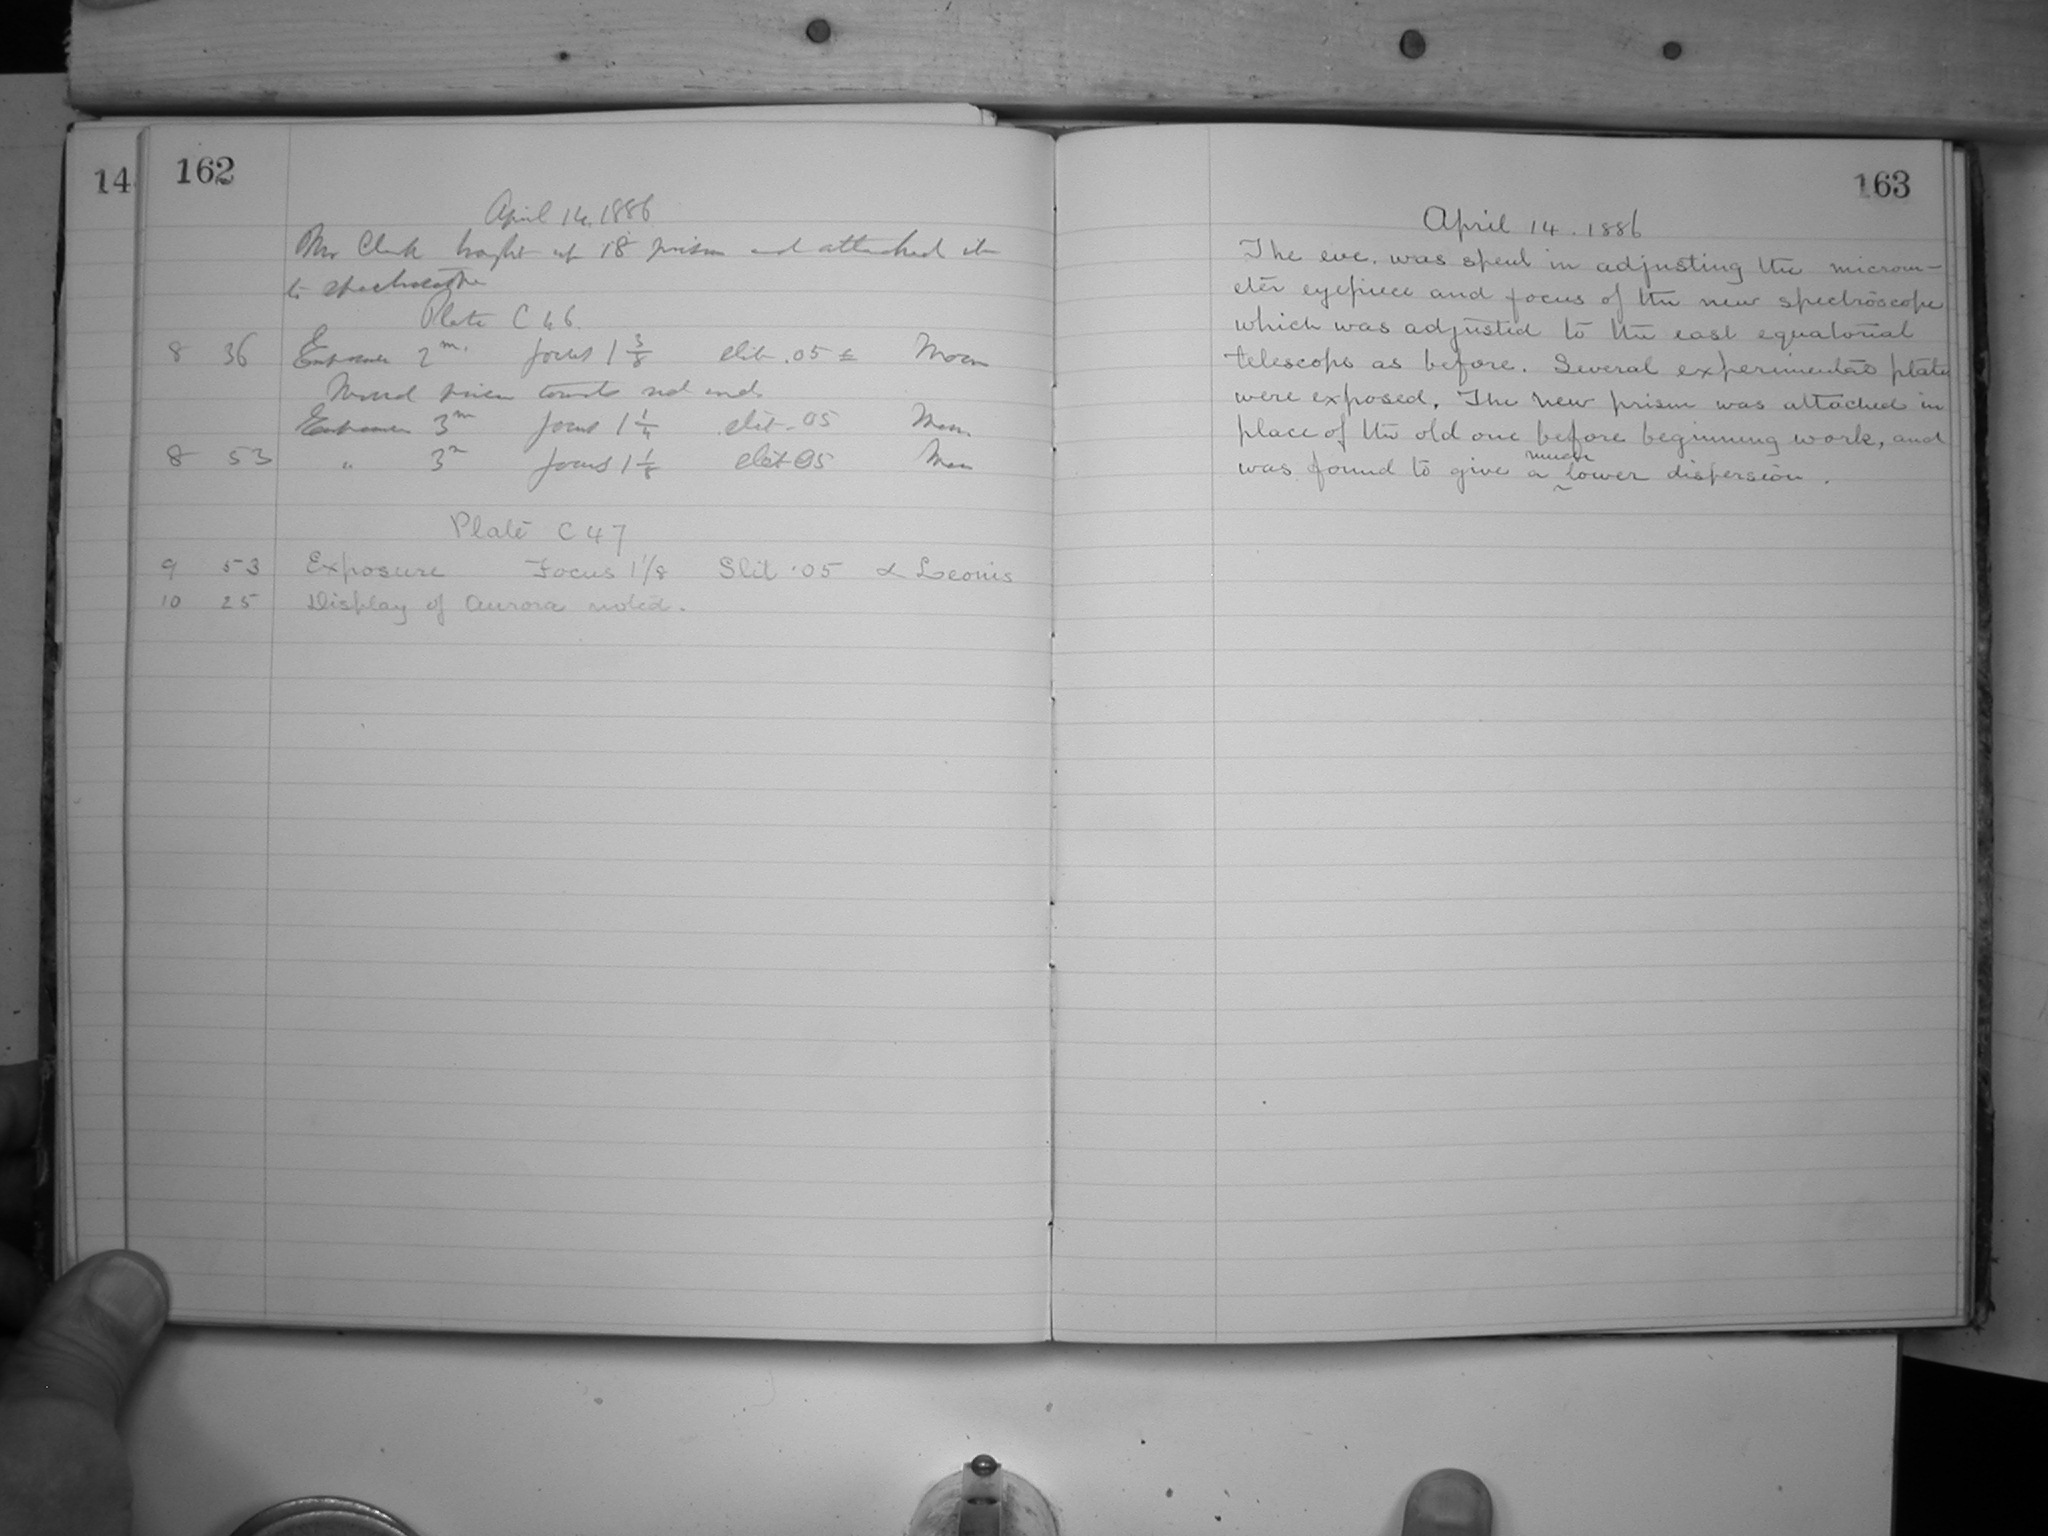 14
162
April 14, 1886
Mr Clark brought up 18° prism and attached it
to spectroscope
Plate C 46.
8 36 Exposure 2m. focus 1 3/8 slit .05 ± Moon
Moved towards red end
Exposure 3m focus 1 1/4 slit .05 Moon
8 53 " 3m focus 1 1/8 slit .05 Moon
Plate C 47
9 53 Exposure Focus 1 1/8 Slit .05 α Leonis
10 25 Display of Aurora noted.
163
April 14. 1886
The eve. was spent in adjusting the microm-
eter eyepiece and focus of the new spectroscope
which was adjusted to the east equatorial
telescope as before. Several experimental plates
were exposed. The new prism was attached in
place of the old one before beginning work, and
was found to give a much lower dispersion.